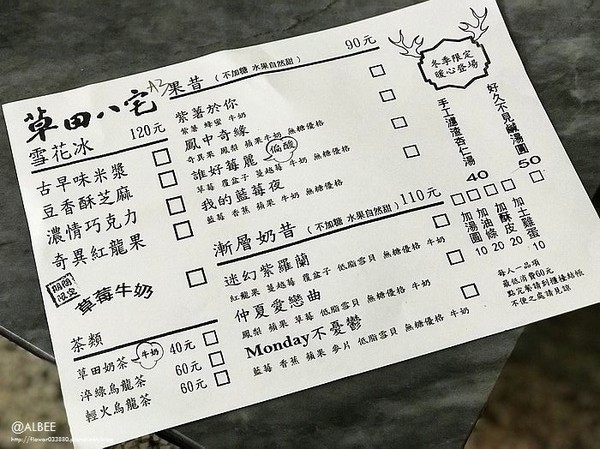 草田八宅
A2
雪花冰 120元
古早味米漿
豆香酥芝麻
濃情巧克力
奇異紅龍果
期間限定
草莓牛奶
茶類
草田奶茶 牛奶 40元
淬綠烏龍茶 60元
輕火烏龍茶 60元
果昔 (不加糖 水果自然甜) 90元
紫薯於你
紫薯 蜂蜜 牛奶
鳳中奇緣
奇異果 鳳梨 蘋果 牛奶 無糖優格
誰好莓麗 偏酸
草莓 覆盆子 蔓越莓 牛奶 無糖優格
我的藍莓夜
藍莓 香蕉 蘋果 牛奶 無糖優格
漸層奶昔 (不加糖 水果自然甜) 110元
迷幻紫羅蘭
紅龍果 蔓越莓 覆盆子 低脂雪貝 無糖優格 牛奶
仲夏愛戀曲
鳳梨 蘋果 草莓 低脂雪貝 無糖優格 牛奶
Monday不憂鬱
藍莓 香蕉 蘋果 麥片 低脂雪貝 無糖優格 牛奶
冬季限定
暖心登場
好久不見鹹湯圓 50
手工濾渣杏仁湯 40
加土雞蛋 10
加酥皮 20
加油條 20
加湯圓 10
每人一品項
最低消費60元
點完餐請到櫃檯結帳
不便之處請見諒
@ALBEE